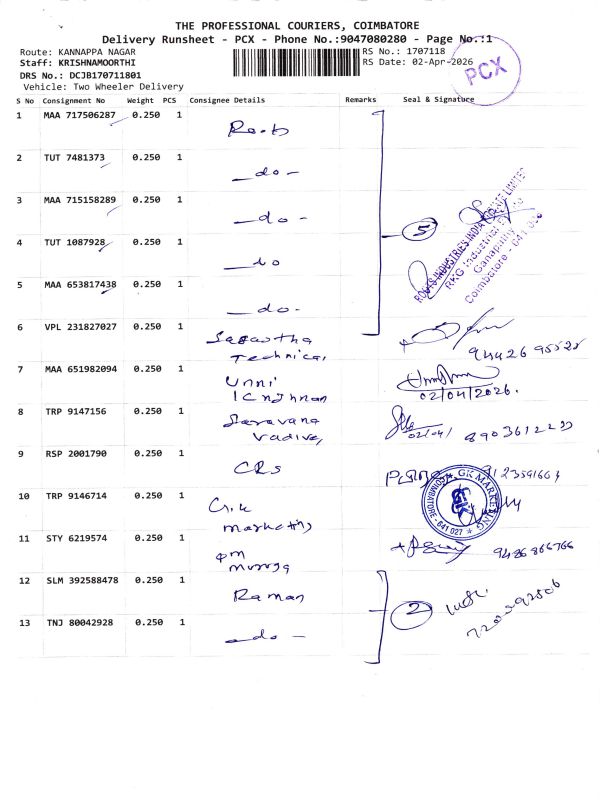 THE PROFESSIONAL COURIERS, COIMBATORE
Delivery Runsheet - PCX - Phone No.:9047080280 - Page No.:1
Route: KANNAPPA NAGAR
RS No.: 1707118
Staff: KRISHNAMOORTHI
RS Date: 02-Apr-2026
PCX
DRS No.: DCJB170711801
Vehicle: Two Wheeler Delivery
S No Consignment No Weight PCS Consignee Details Remarks Seal & Signature
1 MAA 717506287 0.250 1 Roots
2 TUT 7481373 0.250 1 -do-
3 MAA 715158289 0.250 1 -do-
4 TUT 1087928 0.250 1 -do
5 MAA 653817438 0.250 1 -do-
5
ROOTS INDUSTRIES INDIA PRIVATE LIMITED
RKG Industrial
Ganapathy
Coimbatore - 641 006
6 VPL 231827027 0.250 1
Technical
7 MAA 651982094 0.250 1 Unni
Krishnan
02/04/2026.
8 TRP 9147156 0.250 1 Saravana
Vadivel
02/04/
9 RSP 2001790 0.250 1 CRs
10 TRP 9146714 0.250 1 G.K
Marketing
GK MARKETING
COIMBATORE - 641 027
11 STY 6219574 0.250 1 pm
muruga
9486866766
12 SLM 392588478 0.250 1 Raman
13 TNJ 80042928 0.250 1 -do-
2